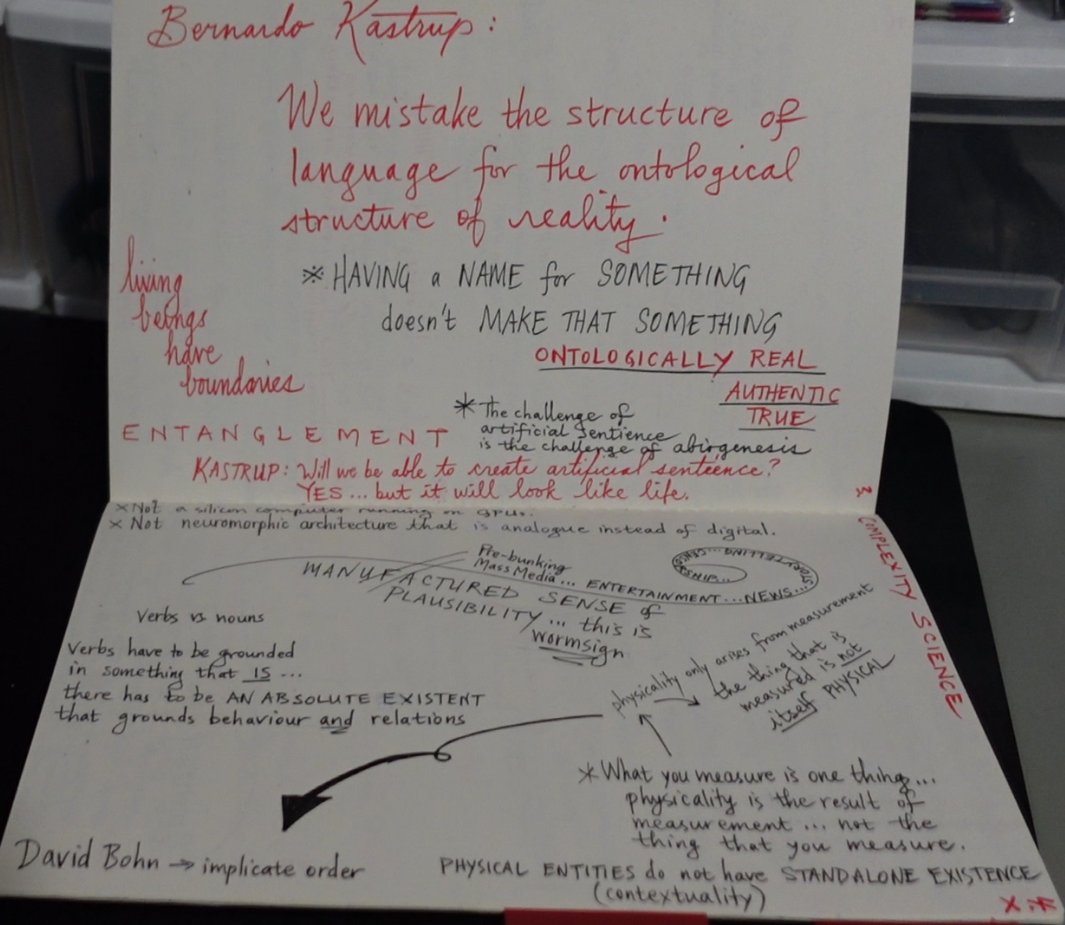 Bernardo Kastrup:
We mistake the structure of
language for the ontological
structure of reality.
living
beings
have
boundaries
* HAVING a NAME for SOMETHING
doesn't MAKE THAT SOMETHING
ONTOLOGICALLY REAL
AUTHENTIC
TRUE
ENTANGLEMENT
* The challenge of
artificial sentience
is the challenge of abiogenesis
KASTRUP: Will we be able to create artificial senteence?
YES... but it will look like life.
x Not a silicon computer running on GPUs.
x Not neuromorphic architecture that is analogue instead of digital.
COMPLEXITY SCIENCE
Pre-bunking
Mass Media... ENTERTAINMENT...NEWS...STORYTELLING...
MANUFACTURED SENSE of
PLAUSIBILITY... this is
wormsign
Verbs vs nouns
Verbs have to be grounded
in something that IS...
there has to be AN ABSOLUTE EXISTENT
that grounds behaviour and relations
physicality only arises from measurement
the thing that is
measured is not
itself PHYSICAL
* What you measure is one thing...
physicality is the result of
measurement... not the
thing that you measure.
David Bohn → implicate order
PHYSICAL ENTITIES do not have STANDALONE EXISTENCE
(contextuality)